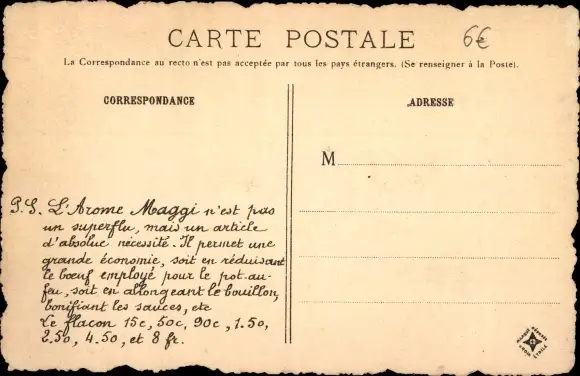 CARTE POSTALE
6€
La Correspondance au recto n'est pas acceptée par tous les pays étrangers. (Se renseigner à la Poste).
CORRESPONDANCE
ADRESSE
M
P.S. L'Arome Maggi n'est pas
un superflu, mais un article
d'absolue nécessité. Il permet une
grande économie, soit en réduisant
le bœuf employé pour le pot-au-
feu, soit en allongeant le bouillon,
bonifiant les sauces, etc
Le flacon 15c, 50c, 90c, 1.50,
2.50, 4.50, et 8 fr.